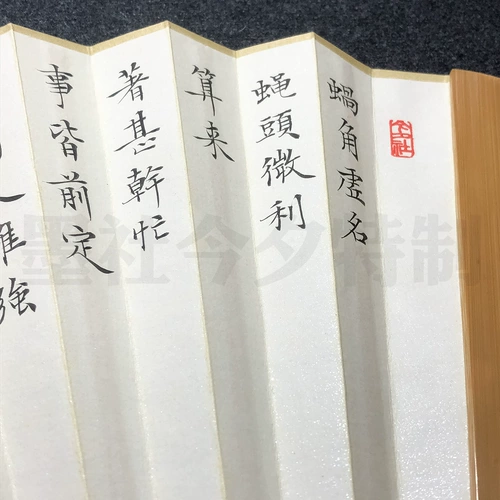 蝸角虚名
蝇頭微利
算来
著甚幹忙
事皆前定
誰強
墨社今夕特制